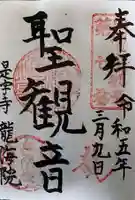 奉拝
令和五年
三月九日
聖観音
是字寺
龍海院